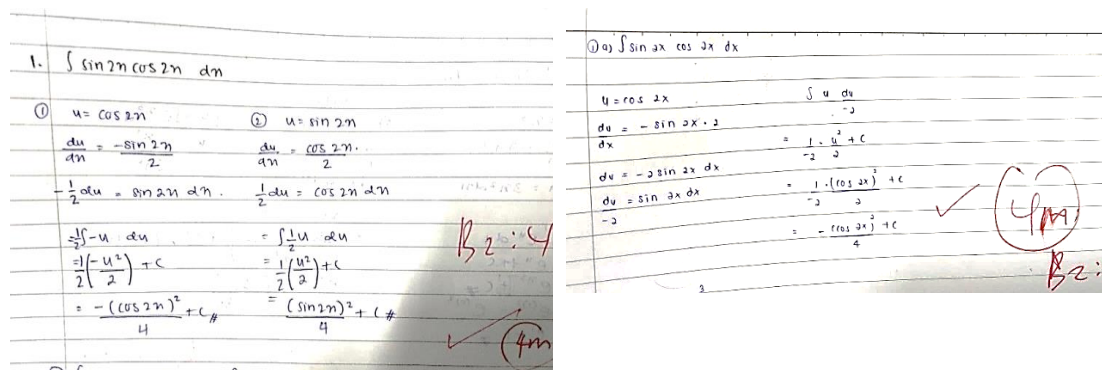 1. ∫ sin 2x cos 2x dx
① u = cos 2x
du/dx = -sin 2x / 2
-1/2 du = sin 2x dx.
= 1/2 ∫ -u du
= 1/2 (-u²/2) + c
= -(cos 2x)²/4 + c #
② u = sin 2x
du/dx = cos 2x. / 2
1/2 du = cos 2x dx
= ∫ 1/2 u du
= 1/2 (u²/2) + c
= (sin 2x)²/4 + c #
B2: 4
✓ 4m
① a) ∫ sin 2x cos 2x dx
u = cos 2x
du/dx = - sin 2x · 2
du = -2 sin 2x dx
du/-2 = sin 2x dx
∫ u du/-2
= 1/-2 · u²/2 + c
= 1/-2 · (cos 2x)²/2 + c
= - (cos 2x)²/4 + c
✓ 4m
B2:
3